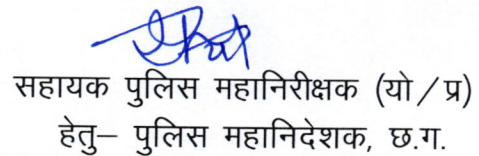 सहायक पुलिस महानिरीक्षक (यो/प्र)
हेतु– पुलिस महानिदेशक, छ.ग.